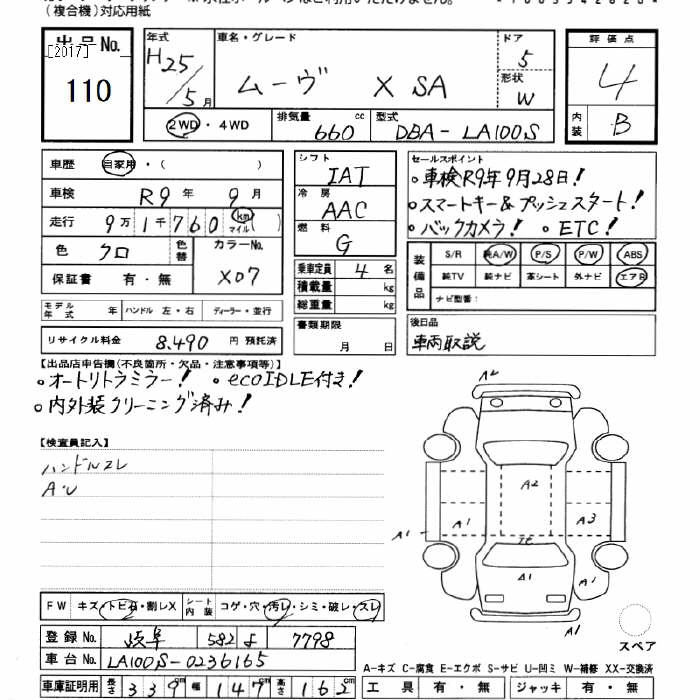 (複合機)対応用紙
出品No. [2017] 110
年式 H25/5月
車名・グレード ムーヴ X SA
ドア 5
形状 W
評価点 4
内装 B
2WD・4WD
排気量 660 cc
型式 DBA-LA100S
車歴 自家用・( )
車検 R9年 9月
走行 9万1千760 km マイル ( )
色 クロ 色替 カラーNo. X07
保証書 有・無
モデル年式 年 ハンドル 左・右 ディーラー・並行
リサイクル料金 8,490 円 預託済
シフト IAT
冷房 AAC
燃料 G
乗車定員 4 名
積載量 kg
総重量 kg
書類期限 月 日
セールスポイント
。車検R9年9月28日!
。スマートキー&プッシュスタート!
。バックカメラ! 。ETC!
装備品 S/R 純A/W P/S P/W ABS
純TV 純ナビ 革シート 外ナビ エアB
ナビ型番:
後日品
車両取説
【出品店申告欄(不良箇所・欠品・注意事項等)】
。オートリトラミラー! 。ecoIDLE付き!
。内外装クリーニング済み!
【検査員記入】
ハンドルスレ
A・U
A2
A2
A1
A1
A3
A1
A1
A1
A1
スペア
FW キズ・トビ石・割レX シート内装 コゲ・穴・汚レ・シミ・破レ・スレ
登録No. 岐阜 582 よ 7798
車台No. LA100S-0236165
車庫証明用 長さ 339cm 幅 147cm 高さ 162cm
A-キズ C-腐食 E-エクボ S-サビ U-凹ミ W-補修 XX-交換済
工具 有・無 ジャッキ 有・無